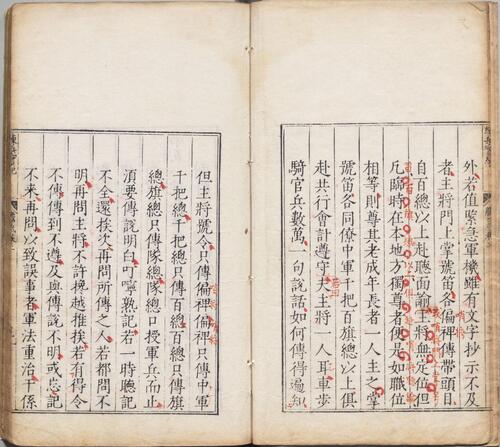 外若值緊急軍機雖有文字抄示不及
者主將門上掌號笛各偏裨傳帶頭目
自百總以上赴聽面諭主將無定位但
凡臨時在本地方獨尊者便是如職位
相等則尊其老成年長者一人主之掌
號笛各同僚中軍千把百旗總以上俱
赴共行會計遵守夫主將一人耳車步
騎官兵數萬一句說話如何傳得遍知
但主將號令只傳偏裨偏裨只傳中軍
千把總千把總只傳百總百總只傳旗
總旗總只傳隊總隊總口授軍兵而止
須要傳說明白叮嚀熟記若一時聽記
不全還挨次再問所傳之人若都問不
明再問主將不許攙越推挨若有得令
不傳傳到不遵及輿傳說不明或忘記
不来再問以致誤事者軍法重治干係